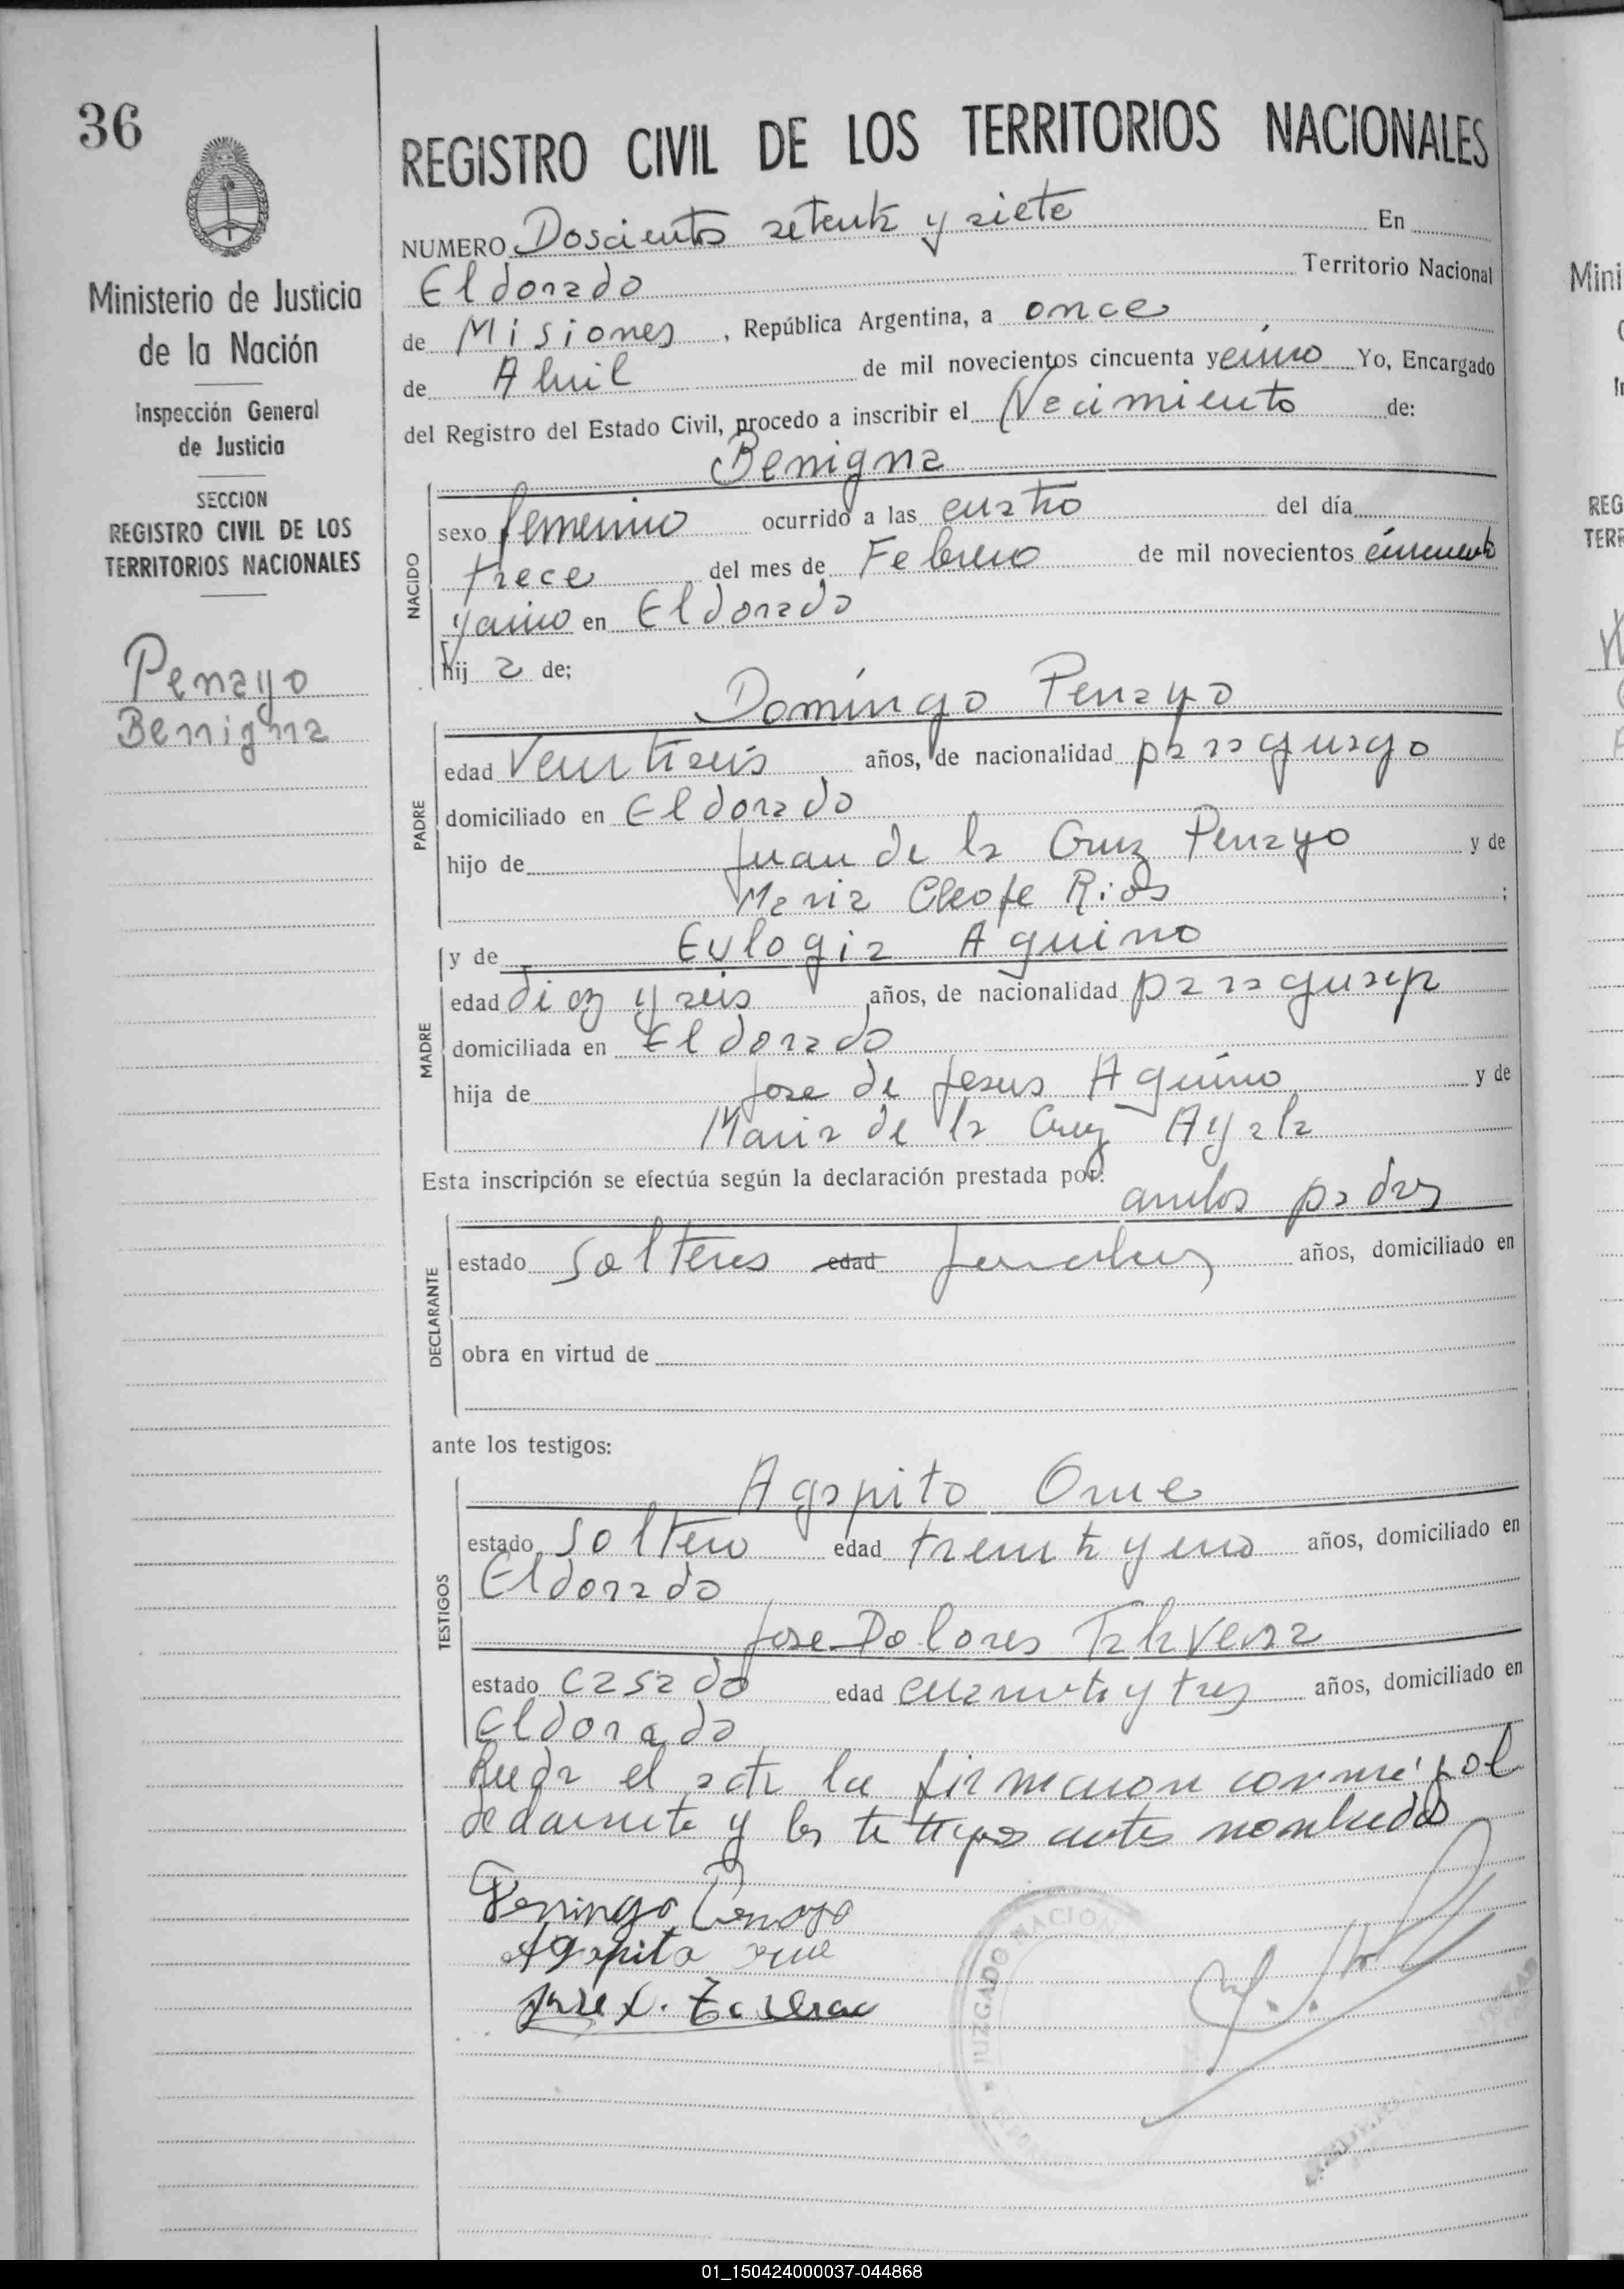 36
Ministerio de Justicia
de la Nación
Inspección General
de Justicia
SECCION
REGISTRO CIVIL DE LOS
TERRITORIOS NACIONALES
Penayo
Benigna
REGISTRO CIVIL DE LOS TERRITORIOS NACIONALES
NUMERO Doscientos setenta y siete En
Eldorado Territorio Nacional
de Misiones, República Argentina, a once
de Abril de mil novecientos cincuenta y cinco Yo, Encargado
del Registro del Estado Civil, procedo a inscribir el Nacimiento de:
Benigna
NACIDO
sexo femenino ocurrido a las cuatro del día
trece del mes de Febrero de mil novecientos cincuenta
y cinco en Eldorado
hij a de;
Domingo Penayo
PADRE
edad Veintiseis años, de nacionalidad paraguayo
domiciliado en Eldorado
hijo de Juan de la Cruz Penayo y de
Maria Cleofe Rios ;
y de Eulogia Aquino
MADRE
edad diez y seis años, de nacionalidad paraguaya
domiciliada en Eldorado
hija de Jose de Jesus Aquino y de
Maria de la Cruz Ayala
Esta inscripción se efectúa según la declaración prestada por:
ambos padres
DECLARANTE
estado Solteros edad años, domiciliado en
obra en virtud de
ante los testigos:
Agapito Orue
TESTIGOS
estado Soltero edad treinta y uno años, domiciliado en
Eldorado
Jose Dolores Talavera
estado casado edad cuarenta y tres años, domiciliado en
Eldorado
el acta la firmaron conmigo el
declarante y los testigos antes nombrados
Domingo Penayo
Agapito orue
JUZGADO NACION
01_150424000037-044868